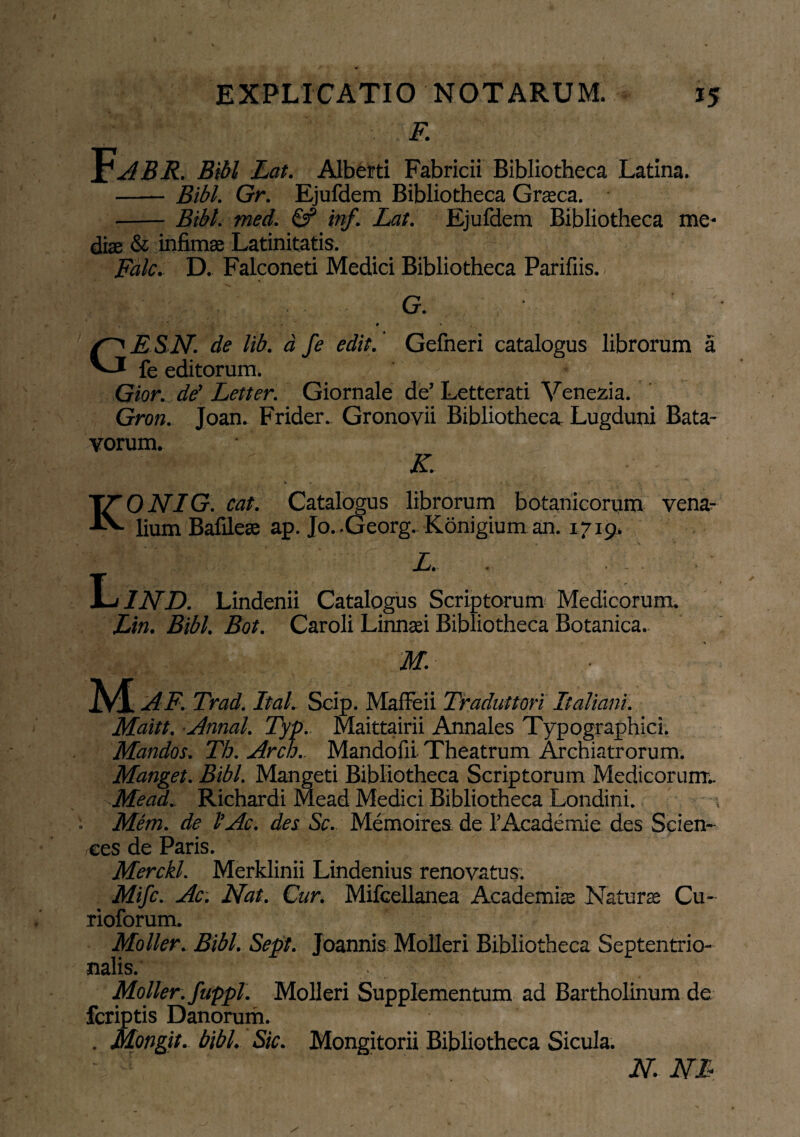 EXPLICATIO NOTARUM. 15
F.
FABR. Bibl Lat. Alberti Fabricii Bibliotheca Latina.
—— Bibl. Gr. Ejuſdem Bibliotheca Græca.
—— Bibl. med. & inf. Lat. Ejuſdem Bibliotheca me-
diæ & infimæ Latinitatis.
Falc. D. Falconeti Medici Bibliotheca Pariſiis.
G.
GESN. de lib. à ſe edit. Geſneri catalogus librorum à
ſe editorum.
Gior. de' Letter. Giornale de' Letterati Venezia.
Gron. Joan. Frider. Gronovii Bibliotheca Lugduni Bata-
vorum.
K.
KONIG. cat. Catalogus librorum botanicorum vena-
lium Baſileæ ap. Jo. Georg. Königium an. 1719.
L.
LIND. Lindenii Catalogus Scriptorum Medicorum.
Lin. Bibl. Bot. Caroli Linnæi Bibliotheca Botanica.
M.
MAF. Trad. Ital. Scip. Maffeii Traduttori Italiani.
Maitt. Annal. Typ. Maittairii Annales Typographici.
Mandos. Th. Arch. Mandoſii Theatrum Archiatrorum.
Manget. Bibl. Mangeti Bibliotheca Scriptorum Medicorum.
Mead. Richardi Mead Medici Bibliotheca Londini.
Mém. de l'Ac. des Sc. Mémoires de l'Académie des Scien-
ces de Paris.
Merckl. Merklinii Lindenius renovatus.
Miſc. Ac. Nat. Cur. Miſcellanea Academiæ Naturæ Cu-
rioſorum.
Moller. Bibl. Sept. Joannis Molleri Bibliotheca Septentrio-
nalis.
Moller. ſuppl. Molleri Supplementum ad Bartholinum de
ſcriptis Danorum.
Mongit. bibl. Sic. Mongitorii Bibliotheca Sicula.
N. NI-